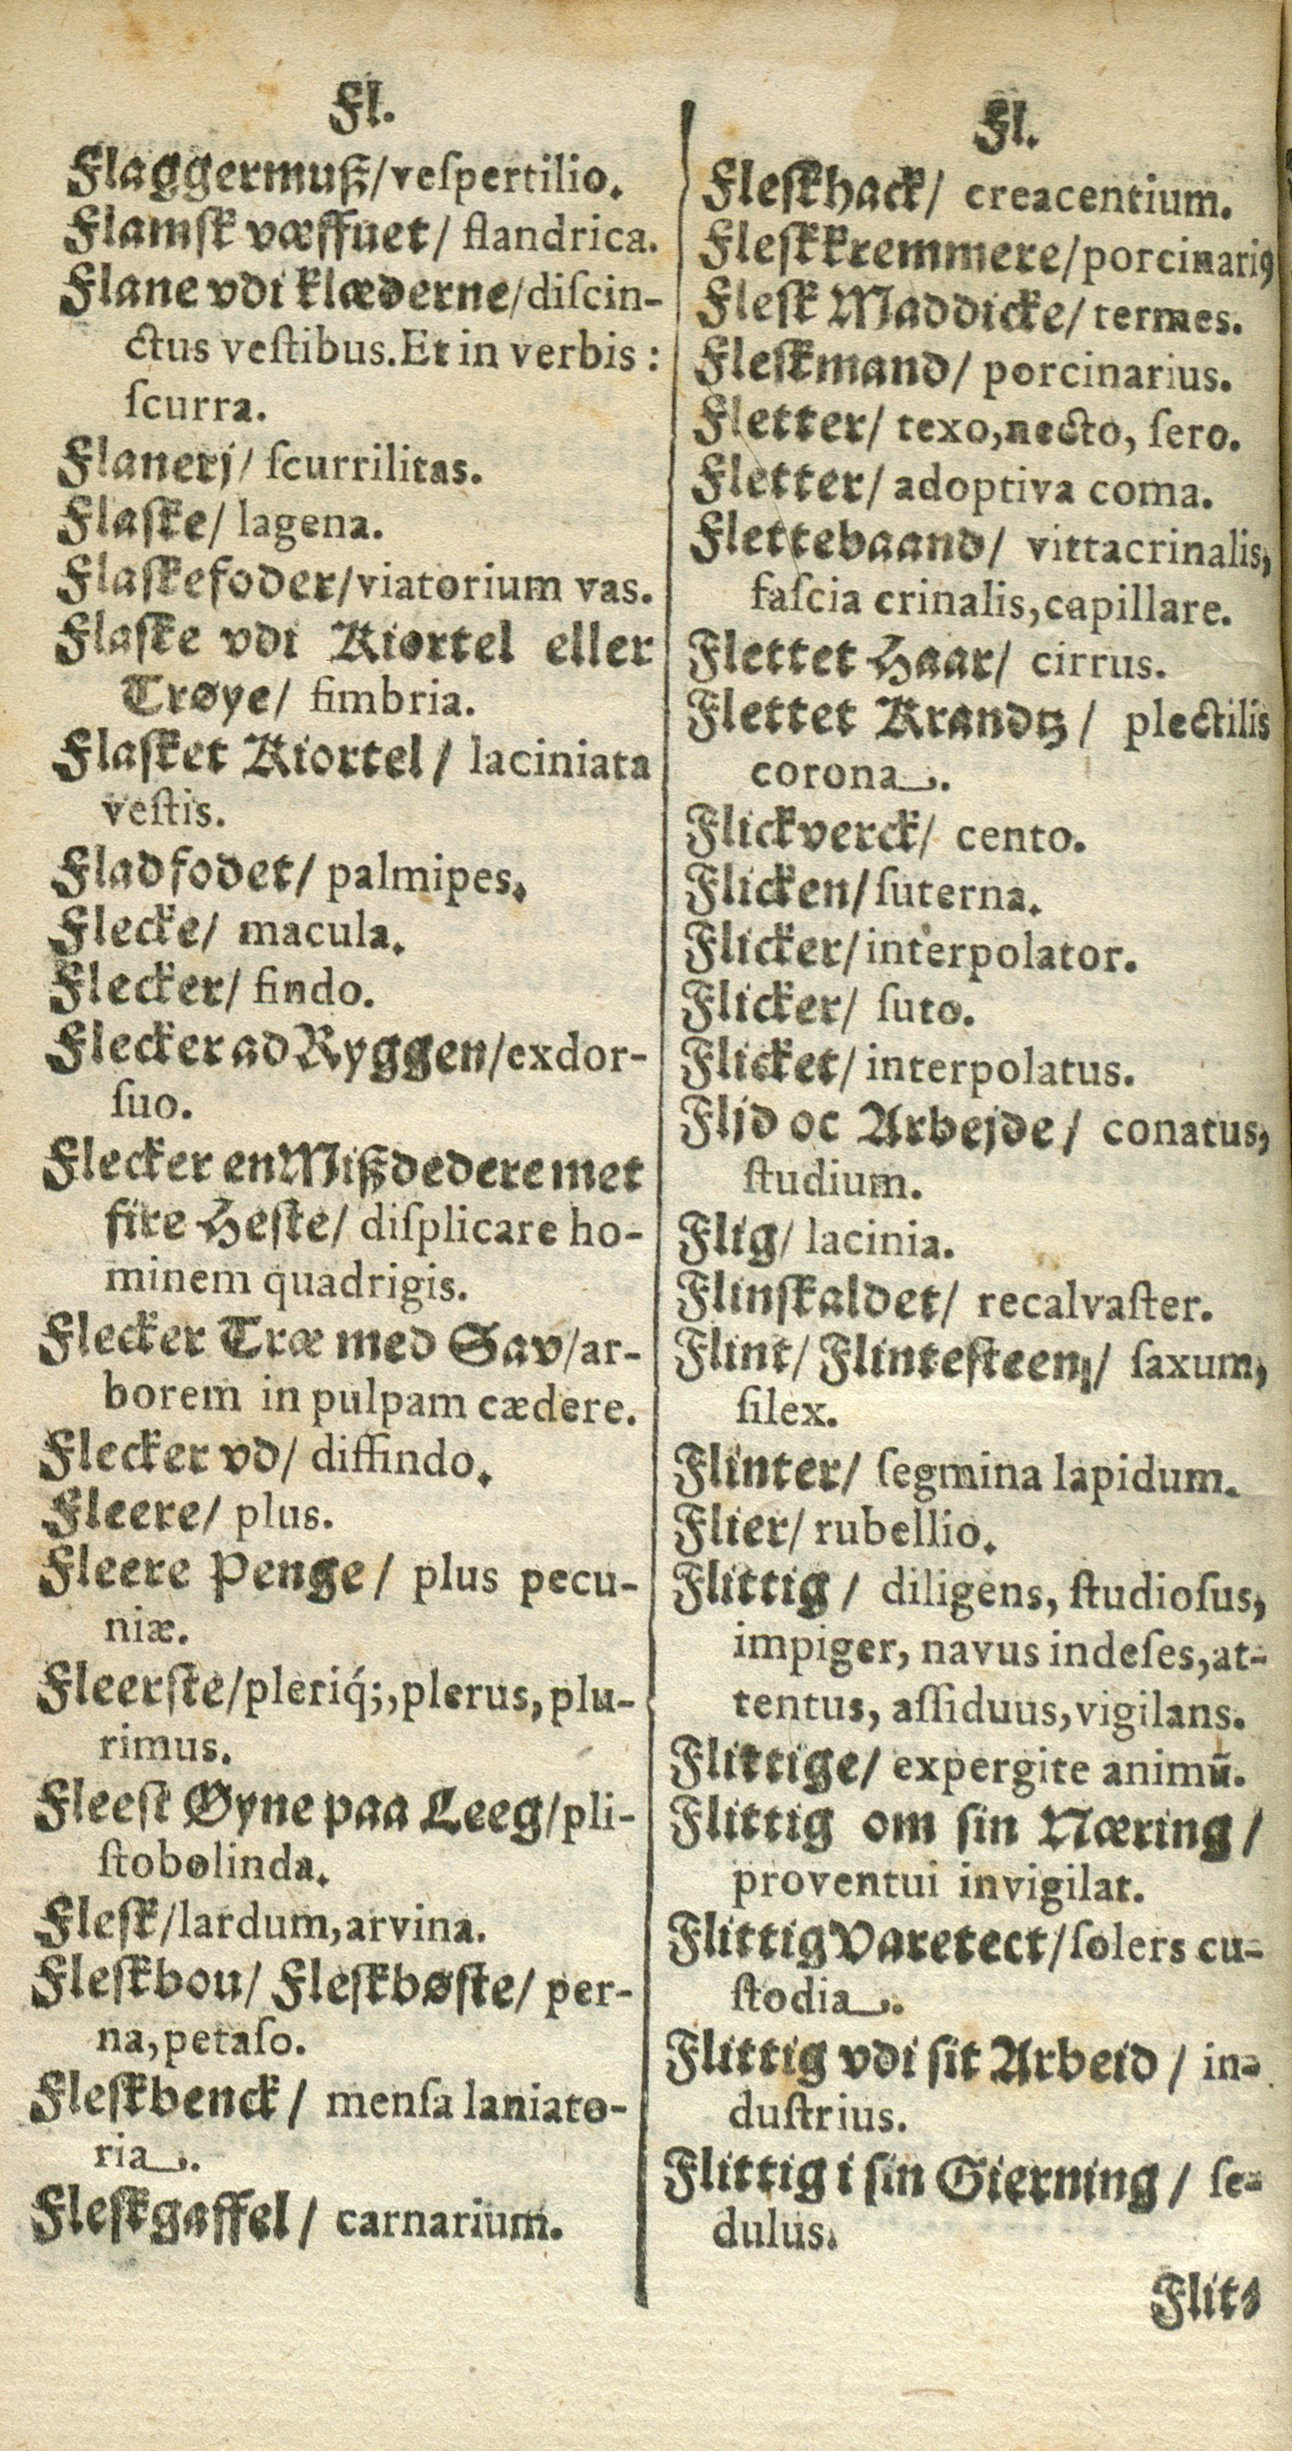 Fl.
Flaggermuß/veſpertilio.
Flamſk væffuet/ flandrica.
Flane vdi klæderne/diſcin-
ctus veſtibus.Et in verbis :
ſcurra.
Flanerj/ ſcurrilitas.
Flaſke/ lagena.
Flaſkefoder/viatorium vas.
Flaſke vdi Kiortel eller
Trøye/ fimbria.
Flaſket Kiortel/ laciniata
veſtis.
Fladfodet/ palmipes.
Flecke/ macula.
Flecker/ findo.
Flecker ad Ryggen/exdor-
ſuo.
Flecker en Mißdedere met
fire Heſte/ diſplicare ho-
minem quadrigis.
Flecker Træ med Sav/ar-
borem in pulpam cædere.
Flecker vd/ diffindo.
Fleere/ plus.
Fleere Penge/ plus pecu-
niæ.
Fleerſte/pleriq́;,plerus, plu-
rimus.
Fleeſt Øyne paa Leeg/pli-
ſtobolinda.
Fleſk/lardum,arvina.
Fleſkbou/ Fleſkbøſte/ per-
na,petaſo.
Fleſkbenck/ menſa laniato-
ria.
Fleſkgaffel/ carnarium.
Fl.
Fleſkhack/ creacentium.
Fleſkkremmere/porcinariꝰ
Fleſk Maddicke/ termes.
Fleſkmand/ porcinarius.
Fletter/ texo,necto, ſero.
Fletter/ adoptiva coma.
Flettebaand/ vittacrinalis,
faſcia crinalis,capillare.
Flettet Haar/ cirrus.
Flettet Krandtz/ plectilis
corona.
Flickverck/ cento.
Flicken/ ſuterna.
Flicker/interpolator.
Flicker/ ſuto.
Flicket/interpolatus.
Fljd oc Arbejde/ conatus,
ſtudium.
Flig/ lacinia.
Flinſkaldet/ recalvaſter.
Flint/ Flinteſteen/ ſaxum,
ſilex.
Flinter/ ſegmina lapidum.
Flier/ rubellio.
Flittig/ diligens, ſtudioſus,
impiger, navus indeſes,at-
tentus, aſſiduus,vigilans.
Flittige/ expergite animū.
Flittig om ſin Næring/
proventui invigilat.
Flittig Varetect/ſolers cu-
ſtodia.
Flittig vdi ſit Arbeid/ in-
duſtrius.
Flittig i ſin Gierning/ ſe-
dulus.
Flit-